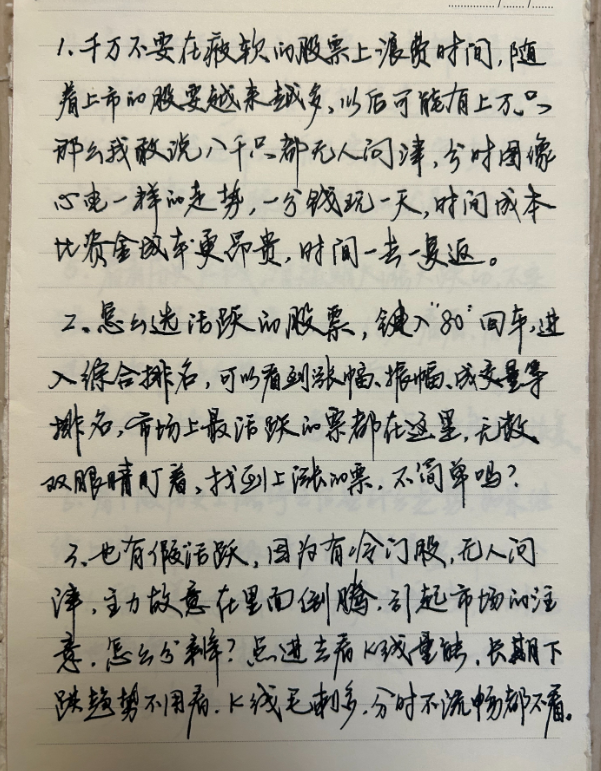 1. 千万不要在疲软的股票上浪费时间,随
着上市的股票越来越多,以后可能有上万只
那么我敢说八千只都无人问津,分时图像
心电一样的走势,一分钱玩一天,时间成本
比资金成本更昂贵,时间一去一复返。
2、怎么选活跃的股票,键入"80"回车,进
入综合排名,可以看到涨幅、振幅、成交量等
排名,市场上最活跃的票都在这里,无数
双眼睛盯着,找到上涨的票,不简单吗?
3、也有假活跃,因为有冷门股,无人问
津,主力故意在里面倒腾,引起市场的注
意,怎么分辨?点进去看K线量能,长期下
跌趋势不用看,K线毛刺多,分时不流畅都不看。